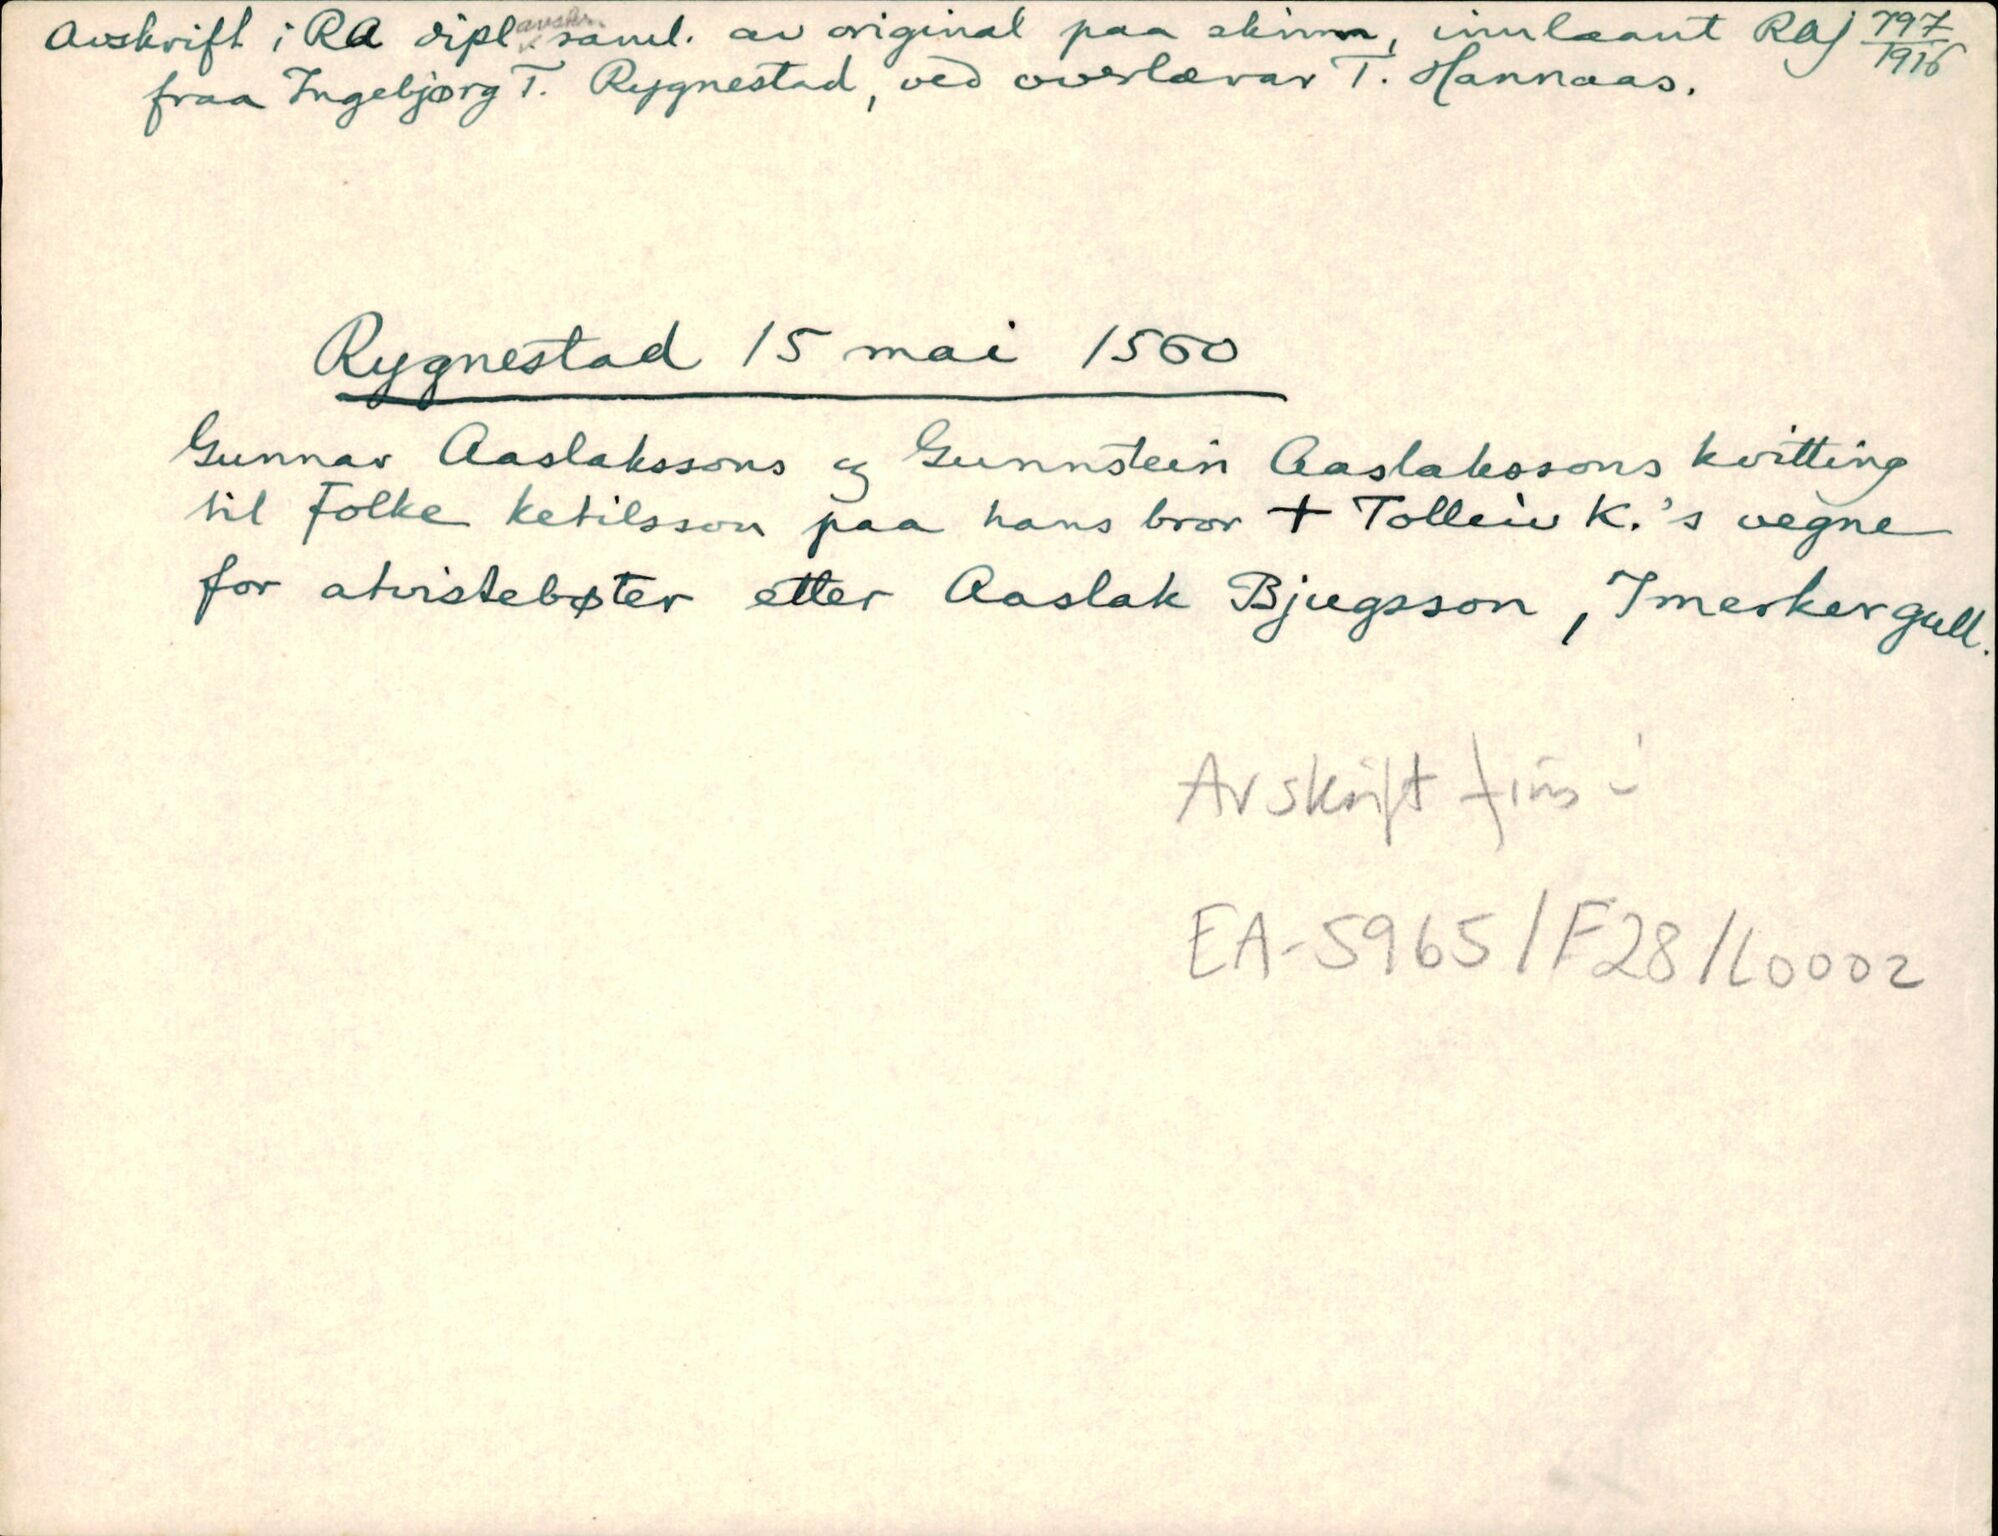 Avskrift i RA dipl avskr. saml. av original paa skinn, innlaant RAj 797/1916
fraa Ingebjørg T. Rygnestad, ved overlærar T. Hannaas.
Rygnestad 15 mai 1560
Gunnar Aaslakssons og Gunnstein Aaslakssons kvitting
til Folke Ketilsson paa hans bror + Tolleiv K.'s vegne
for atvistebøter etter Aaslak Bjugsson, 7 merker gull.
Avskrift fins i
EA-5965/F28/L0002